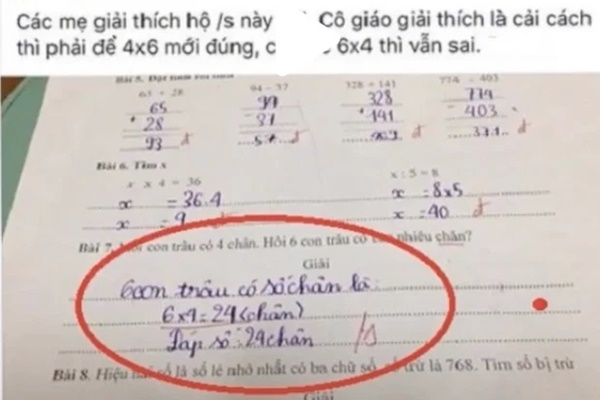 Các mẹ giải thích hộ /s này
thì phải để 4x6 mới đúng, c
Cô giáo giải thích là cải cách
, 6x4 thì vẫn sai.
65 + 28
94 - 37
328 + 141
774 - 403
65
+ 28
93 đ
328
+ 141
đ
774
- 403
371 đ
Bài 6. Tìm x
x x 4 = 36
x = 36.4
x = 9
x : 5 = 8
x = 8x5
x = 40 đ
Bài 7. con trâu có 4 chân. Hỏi 6 con trâu có nhiêu chân?
Giải
6 con trâu có số chân là:
6x4=24(chân)
Đáp số: 24 chân /s
Bài 8. Hiệu hai số là số lẻ nhỏ nhất có ba chữ số, số trừ là 768. Tìm số bị trừ
Giải